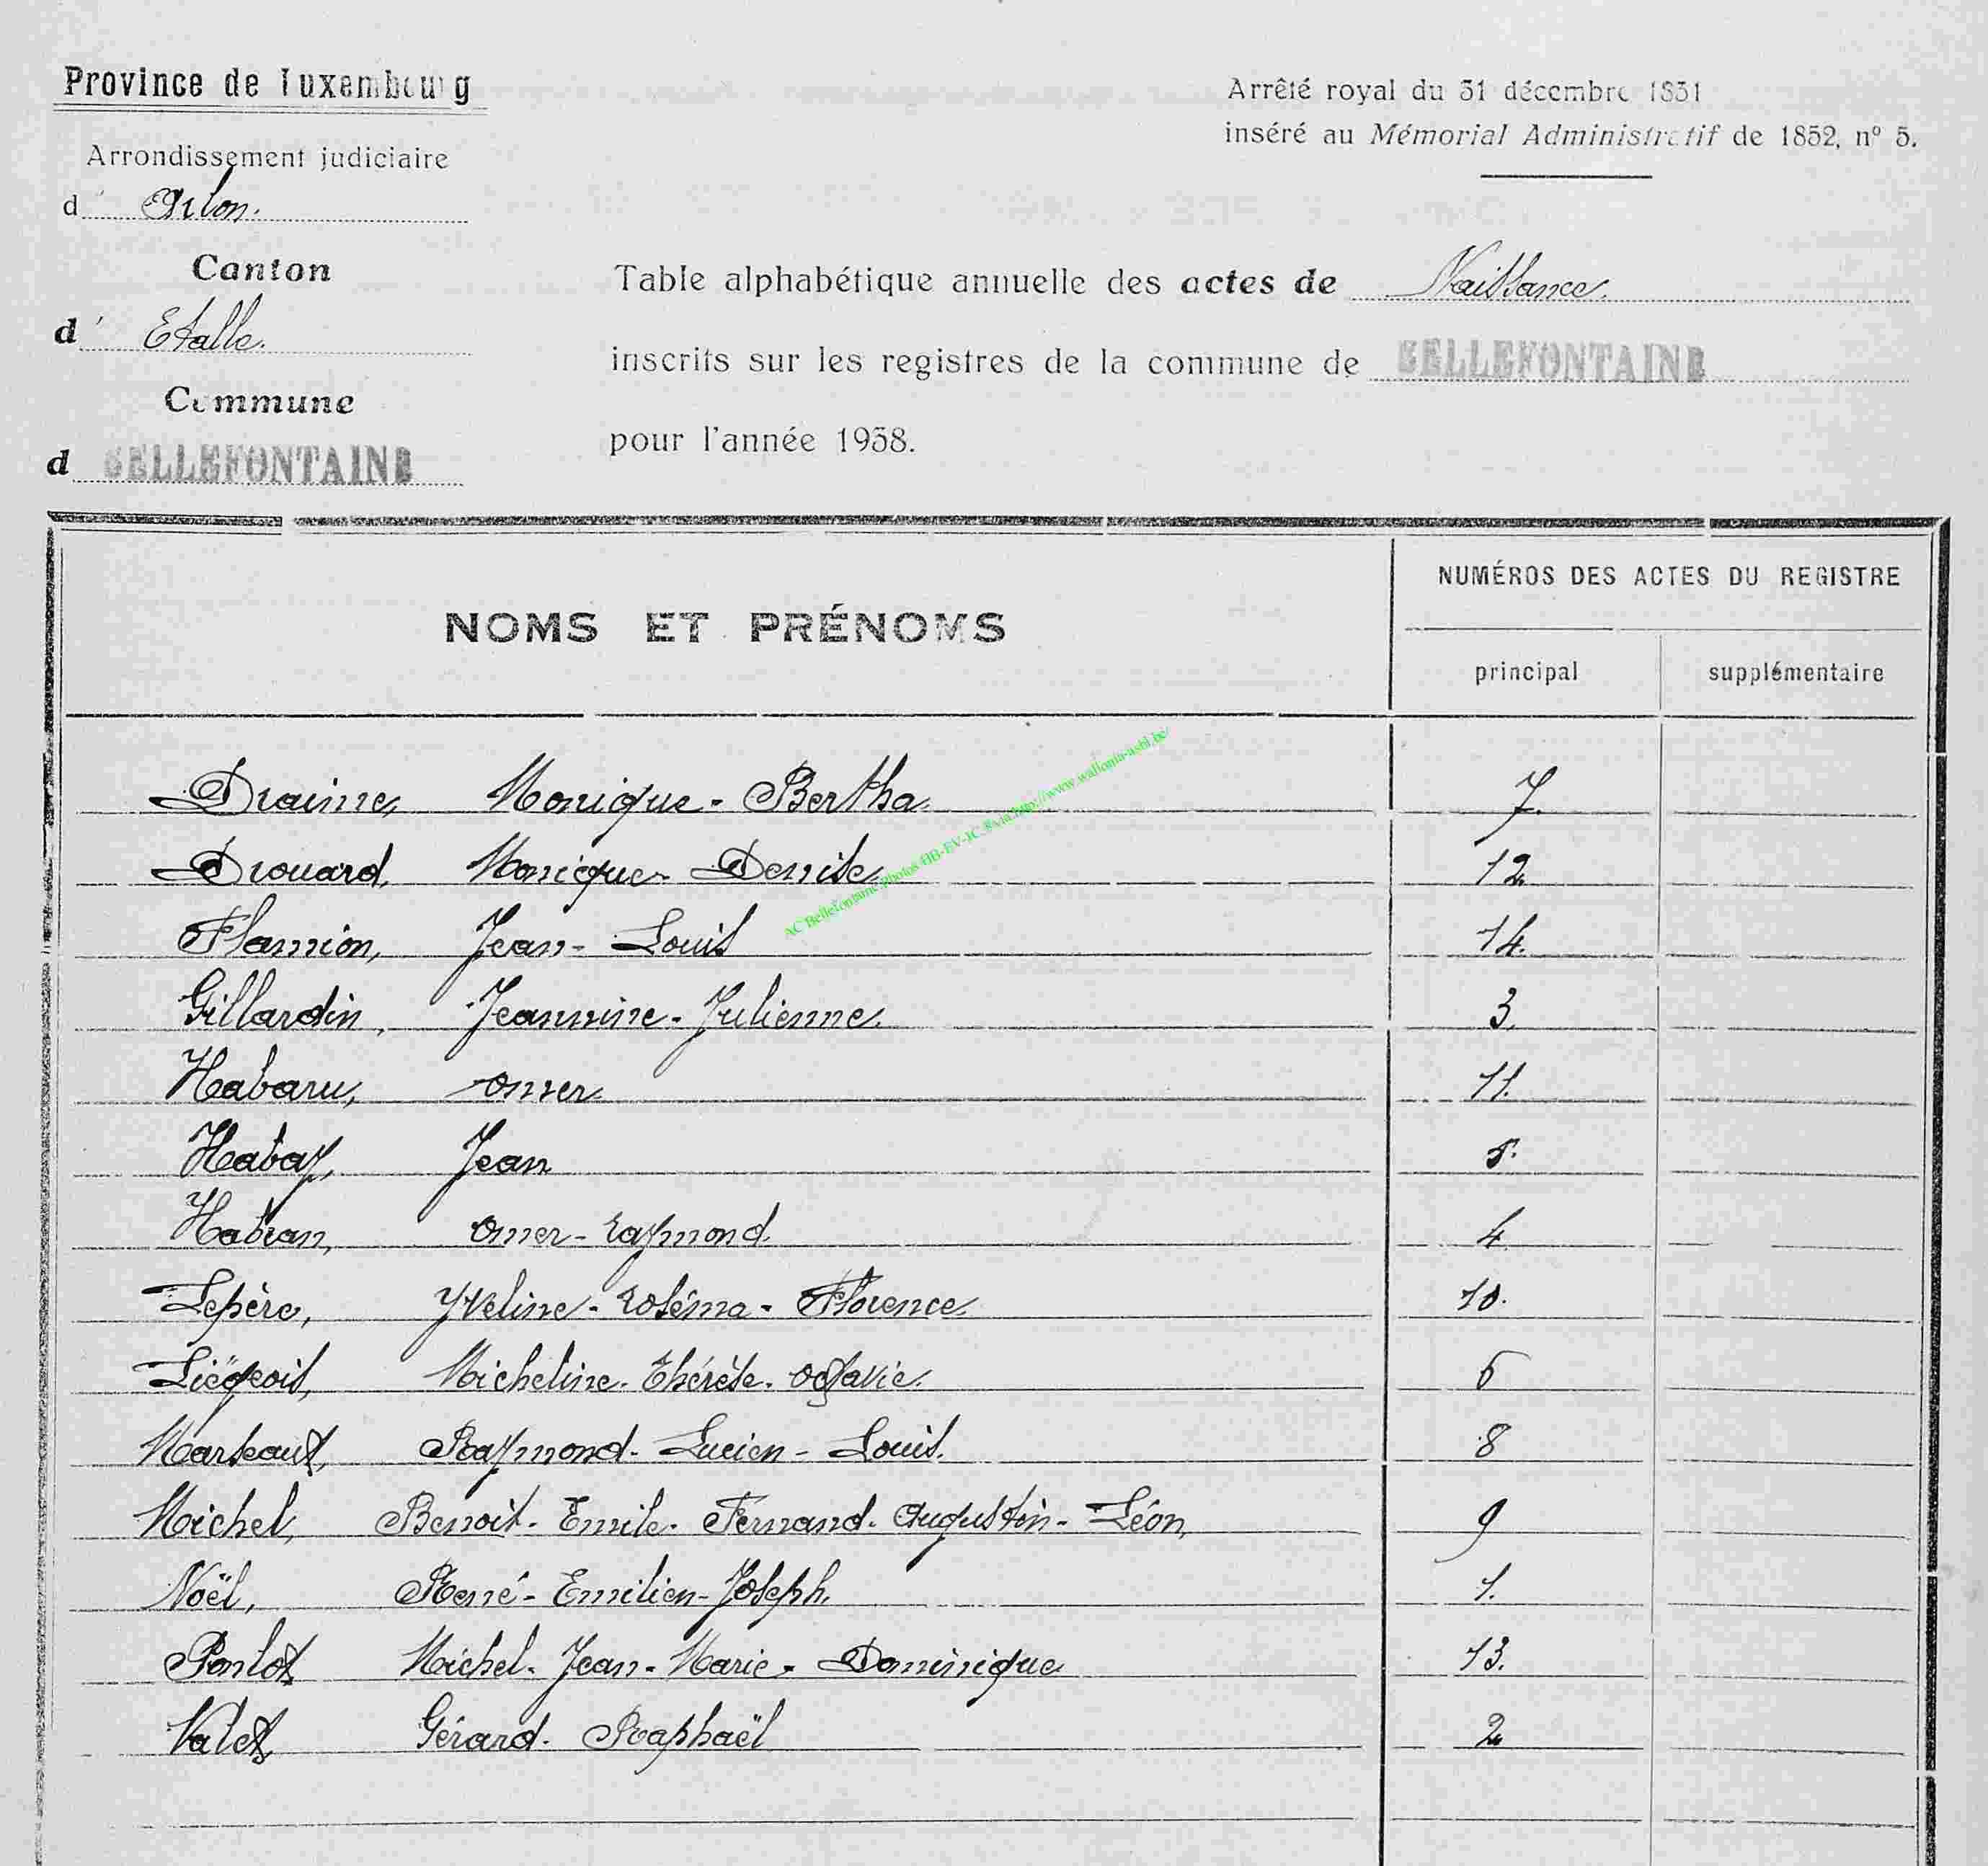 Province de Luxembourg
Arrêté royal du 31 décembre 1831
inséré au Mémorial Administratif de 1832, nº 5.
Arrondissement judiciaire
d' Arlon.
Canton
d' Etalle.
Commune
d BELLEFONTAINE
Table alphabétique annuelle des actes de Naissance.
inscrits sur les registres de la commune de BELLEFONTAINE
pour l'année 1938.
NOMS ET PRÉNOMS
NUMÉROS DES ACTES DU REGISTRE
principal supplémentaire
AC Bellefontaine Photos HB-EV-JC_8 via http://www.wallonia-asbl.be/
Draime, Monique - Bertha. 7.
Drouard, Monique - Denise 12
Flamion, Jean - Louis 14.
Gillardin, Jeannine - Julienne. 3.
Habaru, Omer 11.
Habay, Jean 5.
Habran, Omer - Raymond. 4
Lepère, Yveline - Roséma - Florence 10.
Liégeois, Micheline - Thérèse - Octavie. 6
Marseaut, Raymond - Lucien - Louis. 8
Michel, Benoit - Emile - Fernand - Augustin - Léon, 9
Noël, René - Emilien - Joseph. 1.
Ponlot Michel - Jean - Marie - Dominique 13.
Valet Gérard - Raphaël 2